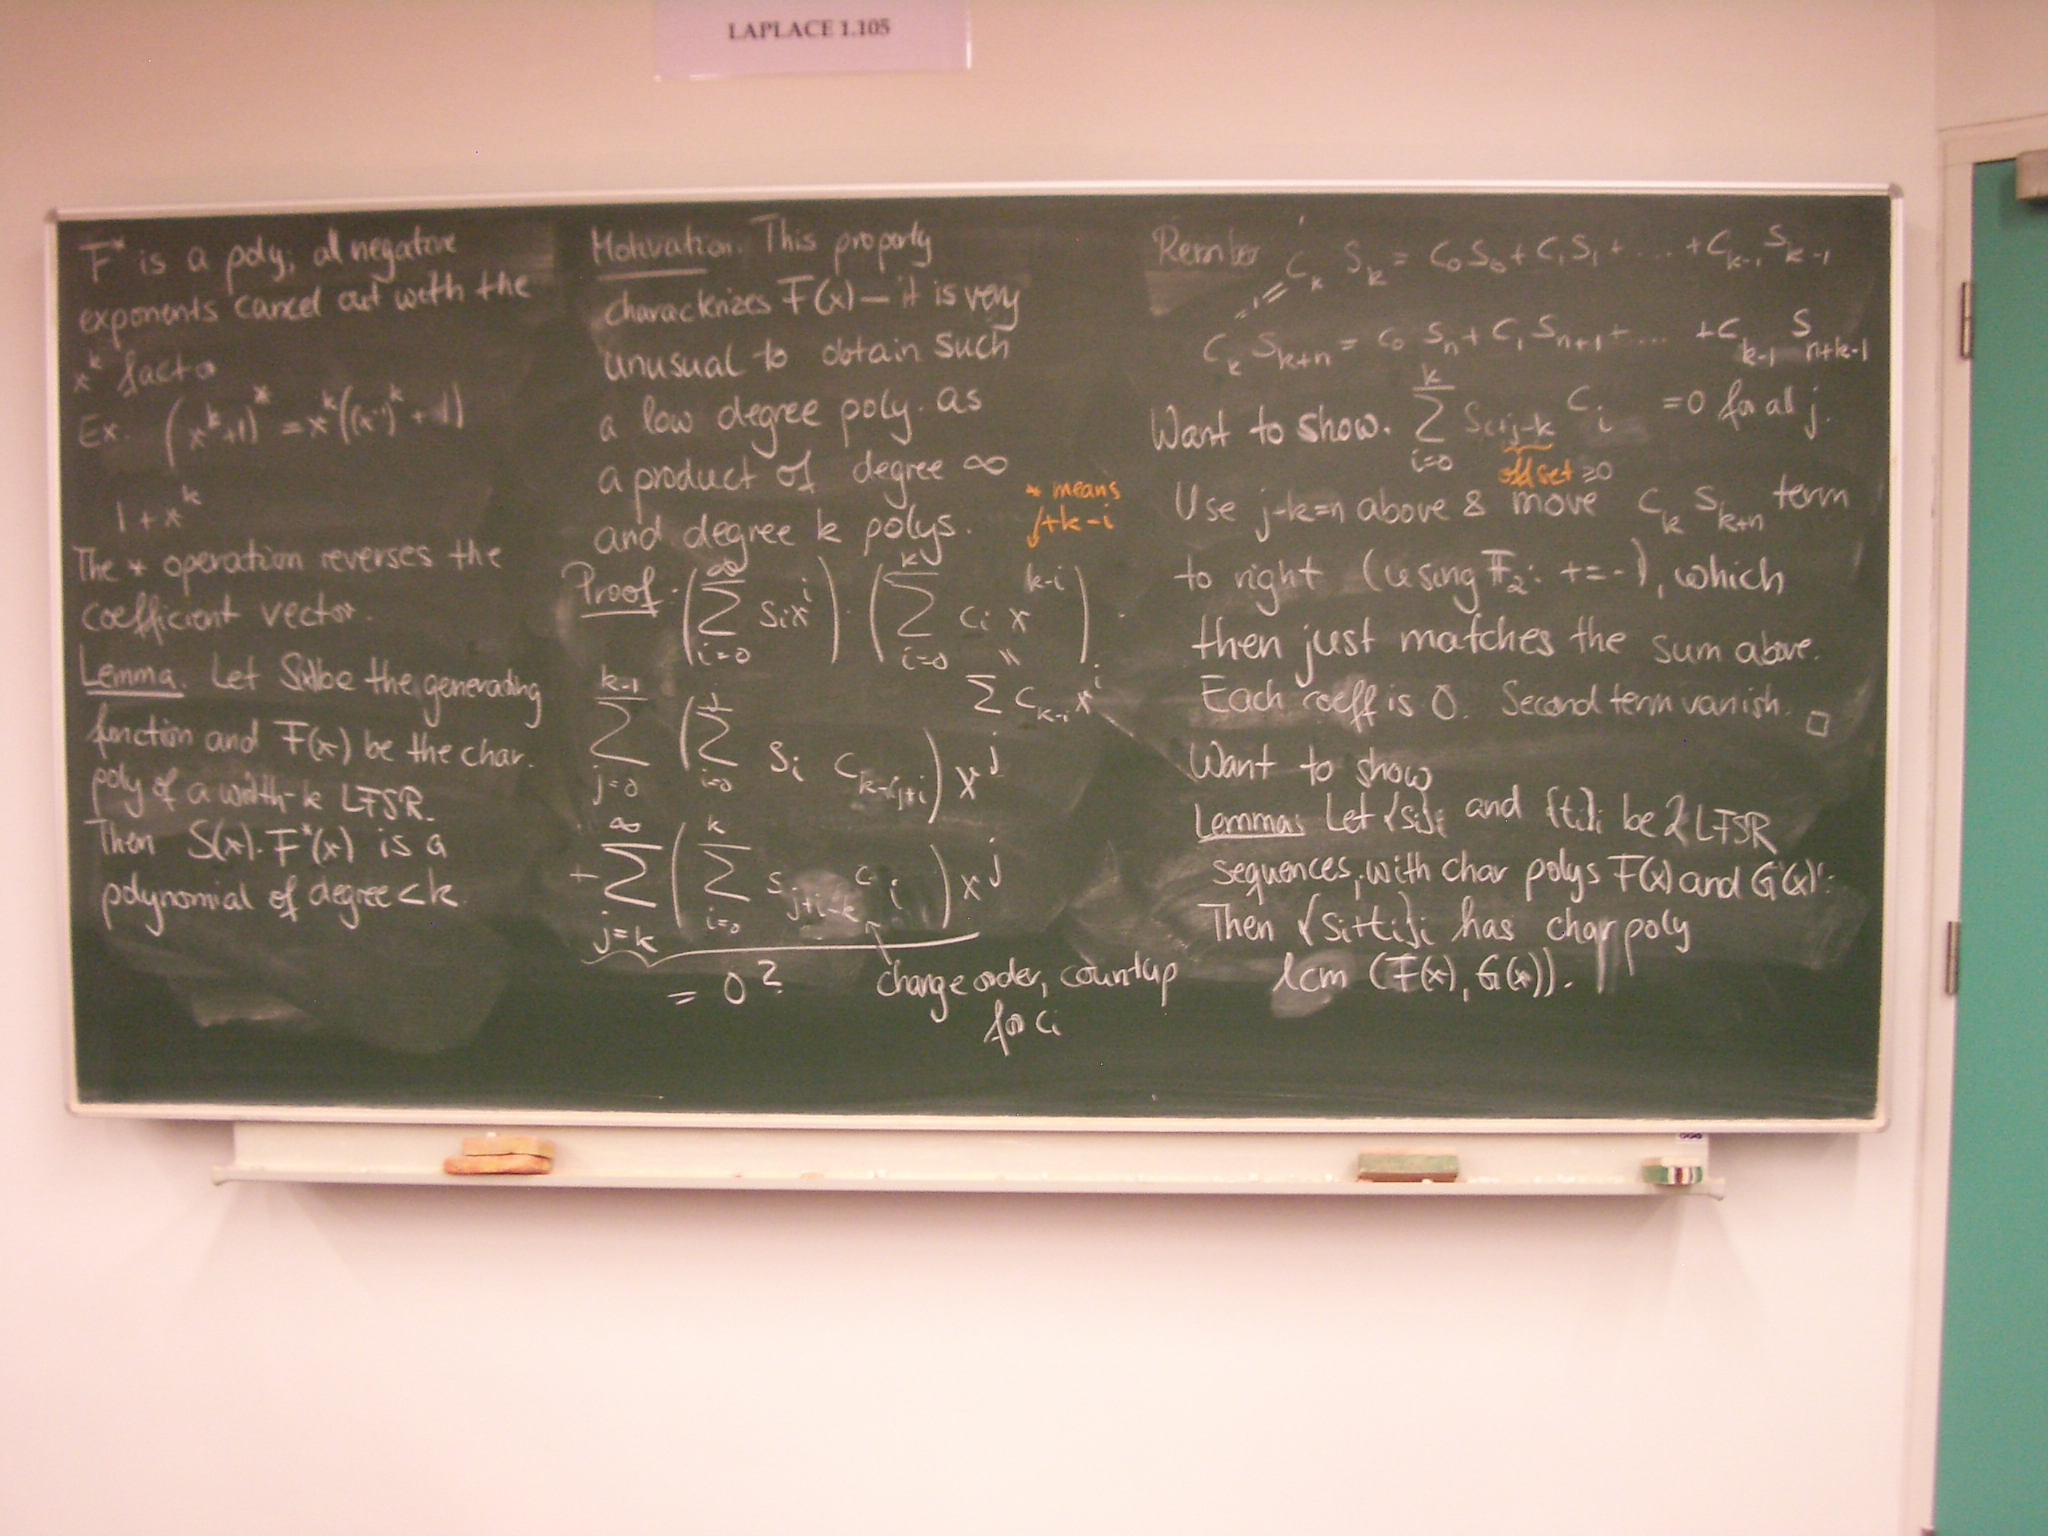 LAPLACE 1.105
F* is a poly; al negative
exponents cancel out with the
x^k factor
Ex. (x^k+1)* = x^k((x^-1)^k + 1)
1 + x^k
The * operation reverses the
coefficient vector.
Lemma. Let S(x) be the generating
function and F(x) be the char.
poly of a width-k LFSR.
Then S(x)·F*(x) is a
polynomial of degree < k.
Motivation. This property
characterizes F(x) – it is very
unusual to obtain such
a low degree poly. as
a product of degree ∞
and degree k polys.
* means
↓ +k-i
Proof. (∑_{i=0}^{∞} s_i x^i) · (∑_{i=0}^{k} c_i x^{k-i}) .
∑ c_{k-i} x^i
∑_{j=0}^{k-1} (∑_{i=0}^{j} s_i c_{k-j+i}) x^j
+ ∑_{j=k}^{∞} (∑_{i=0}^{k} s_{j+i-k} c_i) x^j
= 0?
change order, count up
for c_i
C_k S_k = C_0 S_0 + C_1 S_1 + .... + C_{k-1} S_{k-1}
C_k S_{k+n} = C_0 S_n + C_1 S_{n+1} + .... + C_{k-1} S_{n+k-1}
Want to show. ∑_{i=0}^{k} S_{i+j-k} C_i = 0 for all j.
offset ≥0
Use j-k=n above & move C_k S_{k+n} term
to right (using F_2: +=-), which
then just matches the sum above.
Each coeff is 0. Second term vanish. □
Want to show
Lemma: Let {s_i}_i and {t_i}_i be 2 LFSR
sequences, with char polys F(x) and G(x).
Then {s_i+t_i}_i has char poly
lcm (F(x), G(x)).